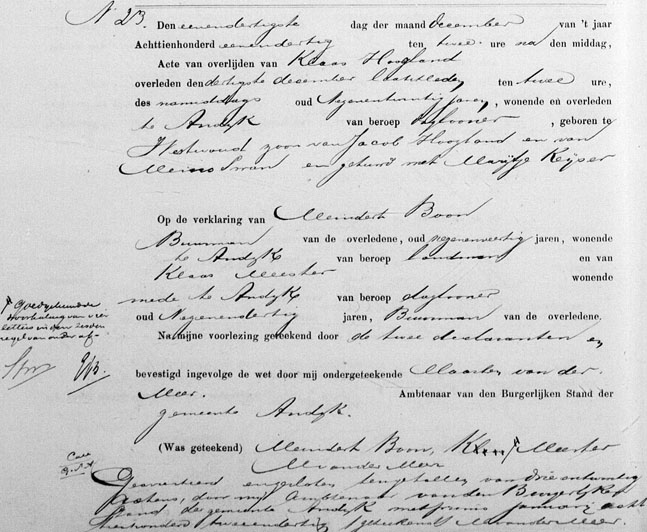 N 23. Den eenendertigste dag der maand December van 't jaar
Achttienhonderd eenendertig ten twee ure na den middag,
Acte van overlijden van Klaas Hoogland
overleden den dertigste december laatstleden ten twee ure,
des namiddags oud Negenentwintig jaren, wonende en overleden
te Andyk van beroep daglooner, geboren te
Westwoud zoon van Jacob Hoogland en van
Meino Swan en gehuwd met Marijtje Keijser
Op de verklaring van Meindert Boon
Buurman van de overledene, oud negenenveertig jaren, wonende
te Andyk van beroep landman en van
Klaas Meester wonende
mede te Andyk van beroep daglooner
oud Negenendertig jaren, Buurman van de overledene.
Na mijne voorlezing geteekend door de twee declaranten en
bevestigd ingevolge de wet door mij ondergeteekende Maarten van der
Meer. Ambtenaar van den Burgerlijken Stand der
gemeente Andyk.
(Was geteekend) Meindert Boon, Meester
M van der Meer
Goedgekeurde
doorhaling van vier
letters in den zesden
regel van onder af
Gearresteerd en gesloten ten getalle van drie entwintig
Actens, door mij Ambtenaar van den Burgerlijken
Stand, de gemeente Andyk met primo January acht
tienhonderd tweeendertig (geteekend) M van der Meer